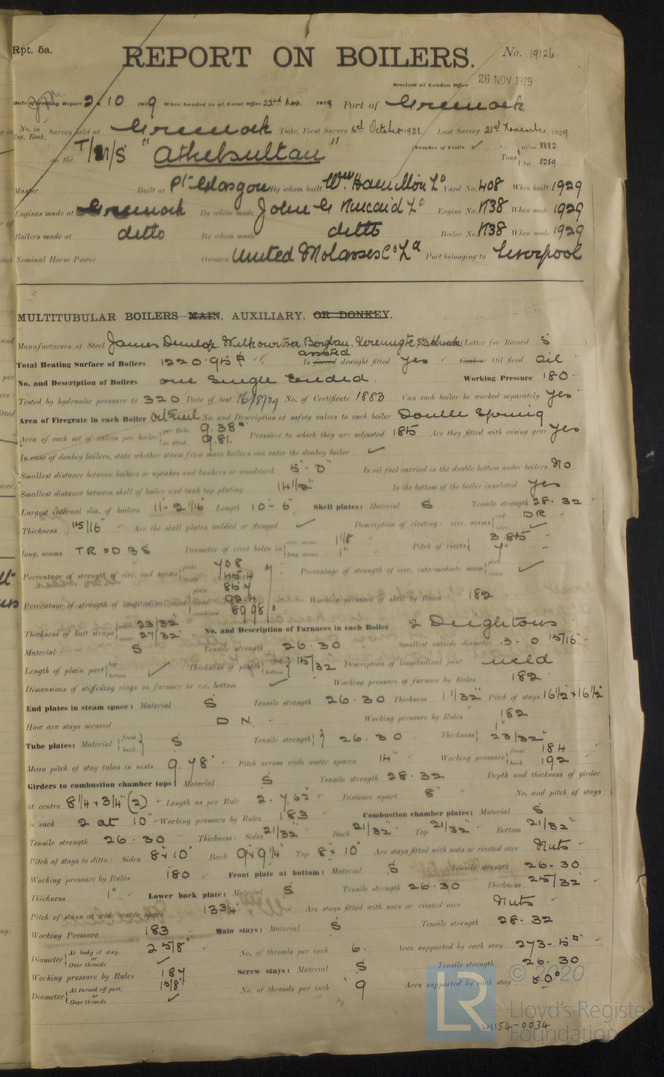 Rpt. 5a.
REPORT ON BOILERS.
No. 19126
Received at London Office 26 NOV 1929
Date of writing Report 2.10 1929 When handed in at Local Office 22nd Nov. 1929 Port of Greenock
No. in Reg. Book. Survey held at Greenock Date, First Survey 6th October 1928 Last Survey 21st November 1929
on the T/M/S "Athelsultan" (Number of Visits ✓ ) Tons Gross 8882 Net 5289
Master Built at Pt Glasgow By whom built Wm Hamilton & Co Yard No. 408 When built 1929
Engines made at Greenock By whom made John G Kincaid & Co Engine No. K38 When made 1929
Boilers made at ditto By whom made ditto Boiler No. K38 When made 1929
Nominal Horse Power Owners United Molasses Co Ld Port belonging to Liverpool
MULTITUBULAR BOILERS MAIN, AUXILIARY, OR DONKEY.
Manufacturers of Steel James Dunlop Letter for Record S
Total Heating Surface of Boilers Is forced assisted draught fitted Yes Oil fired oil
No. and Description of Boilers one Single Ended Working Pressure 180
Tested by hydraulic pressure to 320 Date of test 16/8/29 No. of Certificate 1883 Can each boiler be worked separately Yes
Area of Firegrate in each Boiler Oil Fuel No. and Description of safety valves to each boiler Double Spring
Area of each set of valves per boiler per Rule 9.38 as fitted 9.81 Pressure to which they are adjusted 185 Are they fitted with easing gear Yes
In case of donkey boilers, state whether steam from main boilers can enter the donkey boiler ✓
Smallest distance between boilers or uptakes and bunkers or woodwork 5'-0" Is oil fuel carried in the double bottom under boilers No
Smallest distance between shell of boiler and tank top plating 14 1/2" Is the bottom of the boiler insulated Yes
Largest internal dia. of boilers 11-2 1/16" Length 10-6" Shell plates: Material S Tensile strength 28.32
Thickness 15/16" Are the shell plates welded or flanged ✓ Description of riveting: circ. seams end DR
long. seams TR DBS Diameter of rivet holes in circ. seams 1 1/8 long. seams 1" Pitch of rivets 3.85
Percentage of strength of circ. end seams Percentage of strength of circ. intermediate seam ✓
Percentage of strength of longitudinal joint plate 85.4 rivet combined 89.98 Working pressure of shell by Rules 182
Thickness of butt straps outer 23/32 inner 27/32 No. and Description of Furnaces in each Boiler 2 Deightons
Material S Tensile strength 26.30 Smallest outside diameter 3-0 15/16
Length of plain part top bottom ✓ Thickness of plates 15/32 Description of longitudinal joint weld
Dimensions of stiffening rings on furnace or c.c. bottom ✓ Working pressure of furnace by Rules 182
End plates in steam space: Material S Tensile strength 26.30 Thickness 1 1/32" Pitch of stays 16 1/2 x 16 1/2
How are stays secured D N. Working pressure by Rules 182
Tube plates: Material front back S Tensile strength 26.30 Thickness 1" 23/32"
Mean pitch of stay tubes in nests 9.78" Pitch across wide water spaces 14" Working pressure front 184 back 192
Girders to combustion chamber tops: Material S Tensile strength 28.32 Depth and thickness of girder
at centre 8 1/4 x 3/4" (2) Length as per Rule 2-7.62" Distance apart 8" No. and pitch of stays
in each 2 at 10" Working pressure by Rules 183 Combustion chamber plates: Material S
Tensile strength 26.30 Thickness: Sides 21/32 Back 21/32" Top 21/32" Bottom 21/32"
Pitch of stays to ditto: Sides 8 x 10" Back 9 x 9 1/4 Top 8 x 10" Are stays fitted with nuts or riveted over Nuts
Working pressure by Rules 180 Front plate at bottom: Material S Tensile strength 26.30
Thickness 1" Lower back plate: Material S Tensile strength 26.30 Thickness 25/32"
Pitch of stays at wide water space 13 3/4 Are stays fitted with nuts or riveted over Nuts
Working Pressure 183 Main stays: Material S Tensile strength 28.32
Diameter At body of stay, or Over threads 2 5/8" No. of threads per inch 6. Area supported by each stay 273.5
Working pressure by Rules 187 Screw stays: Material S Tensile strength 26.30
Diameter At turned off part, or Over threads 1 5/8" ✓ No. of threads per inch 9 Area supported by each stay 80
LR
© 2020
Lloyd's Register
Foundation
W1154-0034